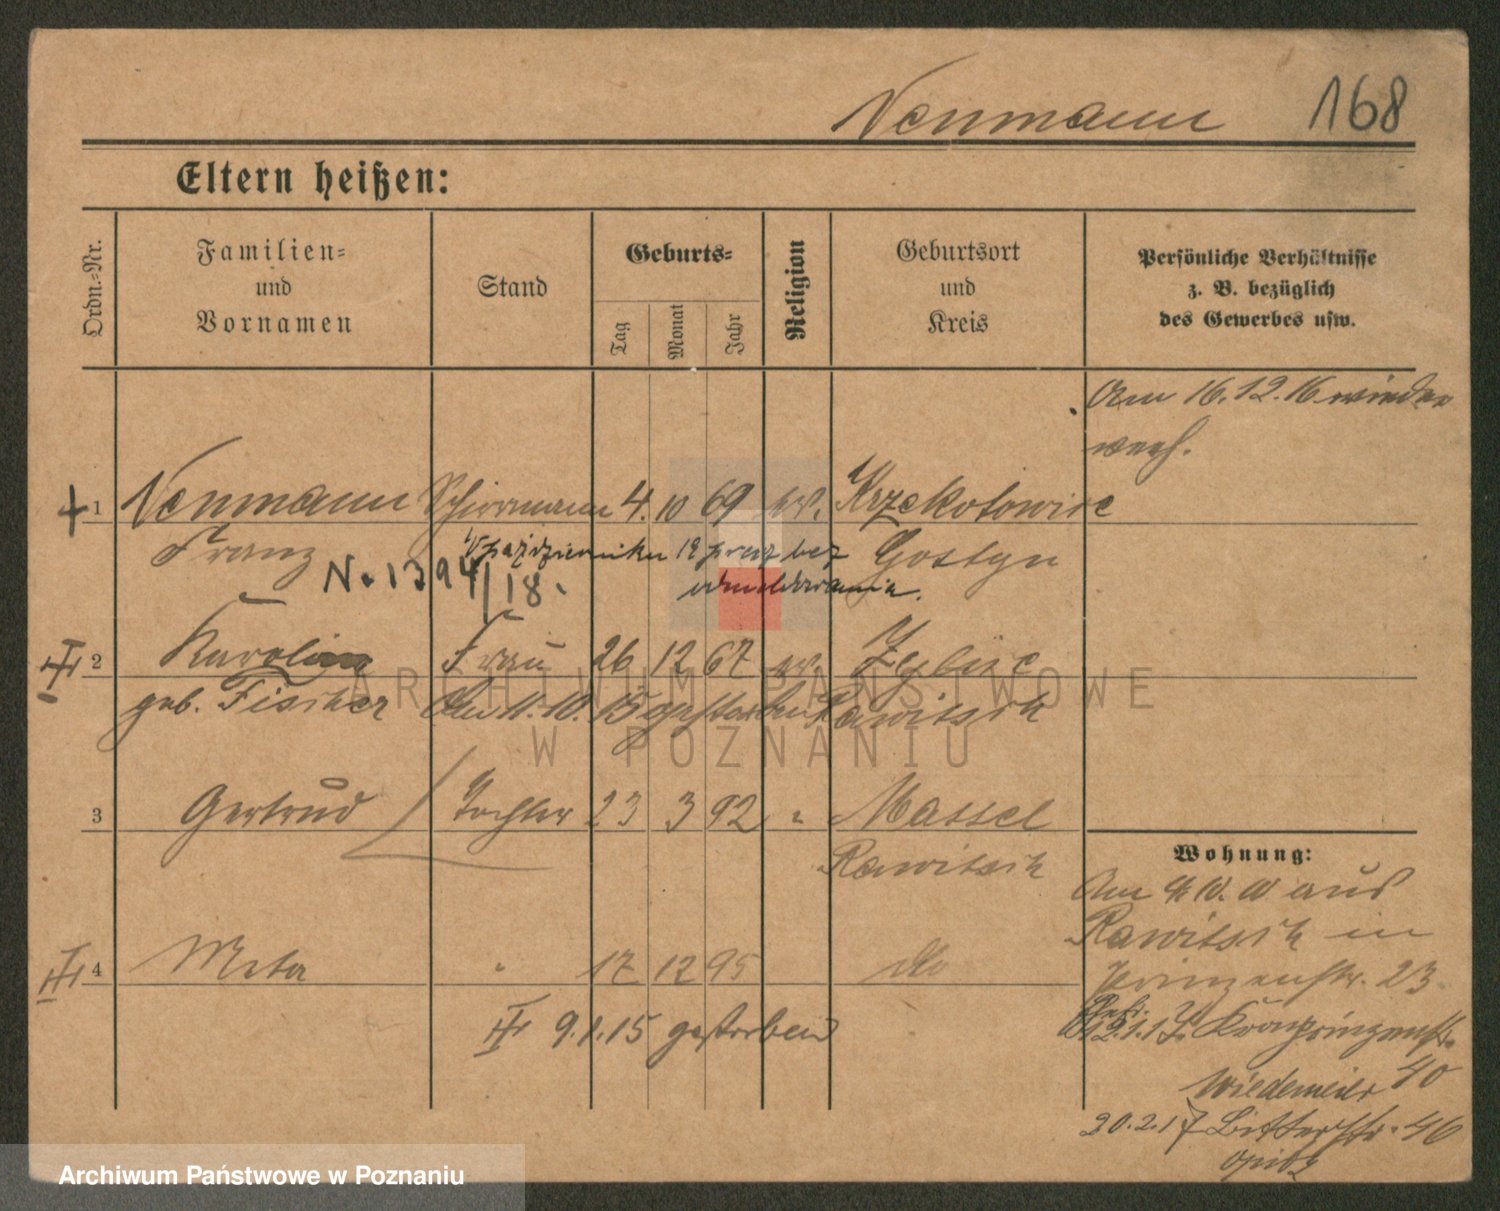 Neumann 168
Eltern heißen:
Ordn.-Nr.
Familien-
und
Vornamen
Stand
Geburts-
Tag
Monat
Jahr
Religion
Geburtsort
und
Kreis
Persönliche Verhältnisse
z. B. bezüglich
des Gewerbes usw.
Am 16.12.16 wieder
verh.
1 Neumann Schirrmann 4. 10 69 ev. Krzekotowice
Franz Gostyn
W październiku 18 przez bez
odmeldowania.
No 1394/18.
2 Karolina Frau 26 12 67 ev. Zglinice
geb. Fischer Am 11.10.15 gestorben Rawitsch
3 Gertrud Tochter 23 3 92 " Massel
Rawitsch
4 Meta " 17 12 95 do
9.1.15 gestorben
Wohnung:
Am aus
Rawitsch in
Prinzenstr. 23.
12.1.17. Kronprinzenstr.
40
Wiedemeier
20.2.17 Bitterstr. 46
Opitz
ARCHIWUM PAŃSTWOWE
W POZNANIU
Archiwum Państwowe w Poznaniu